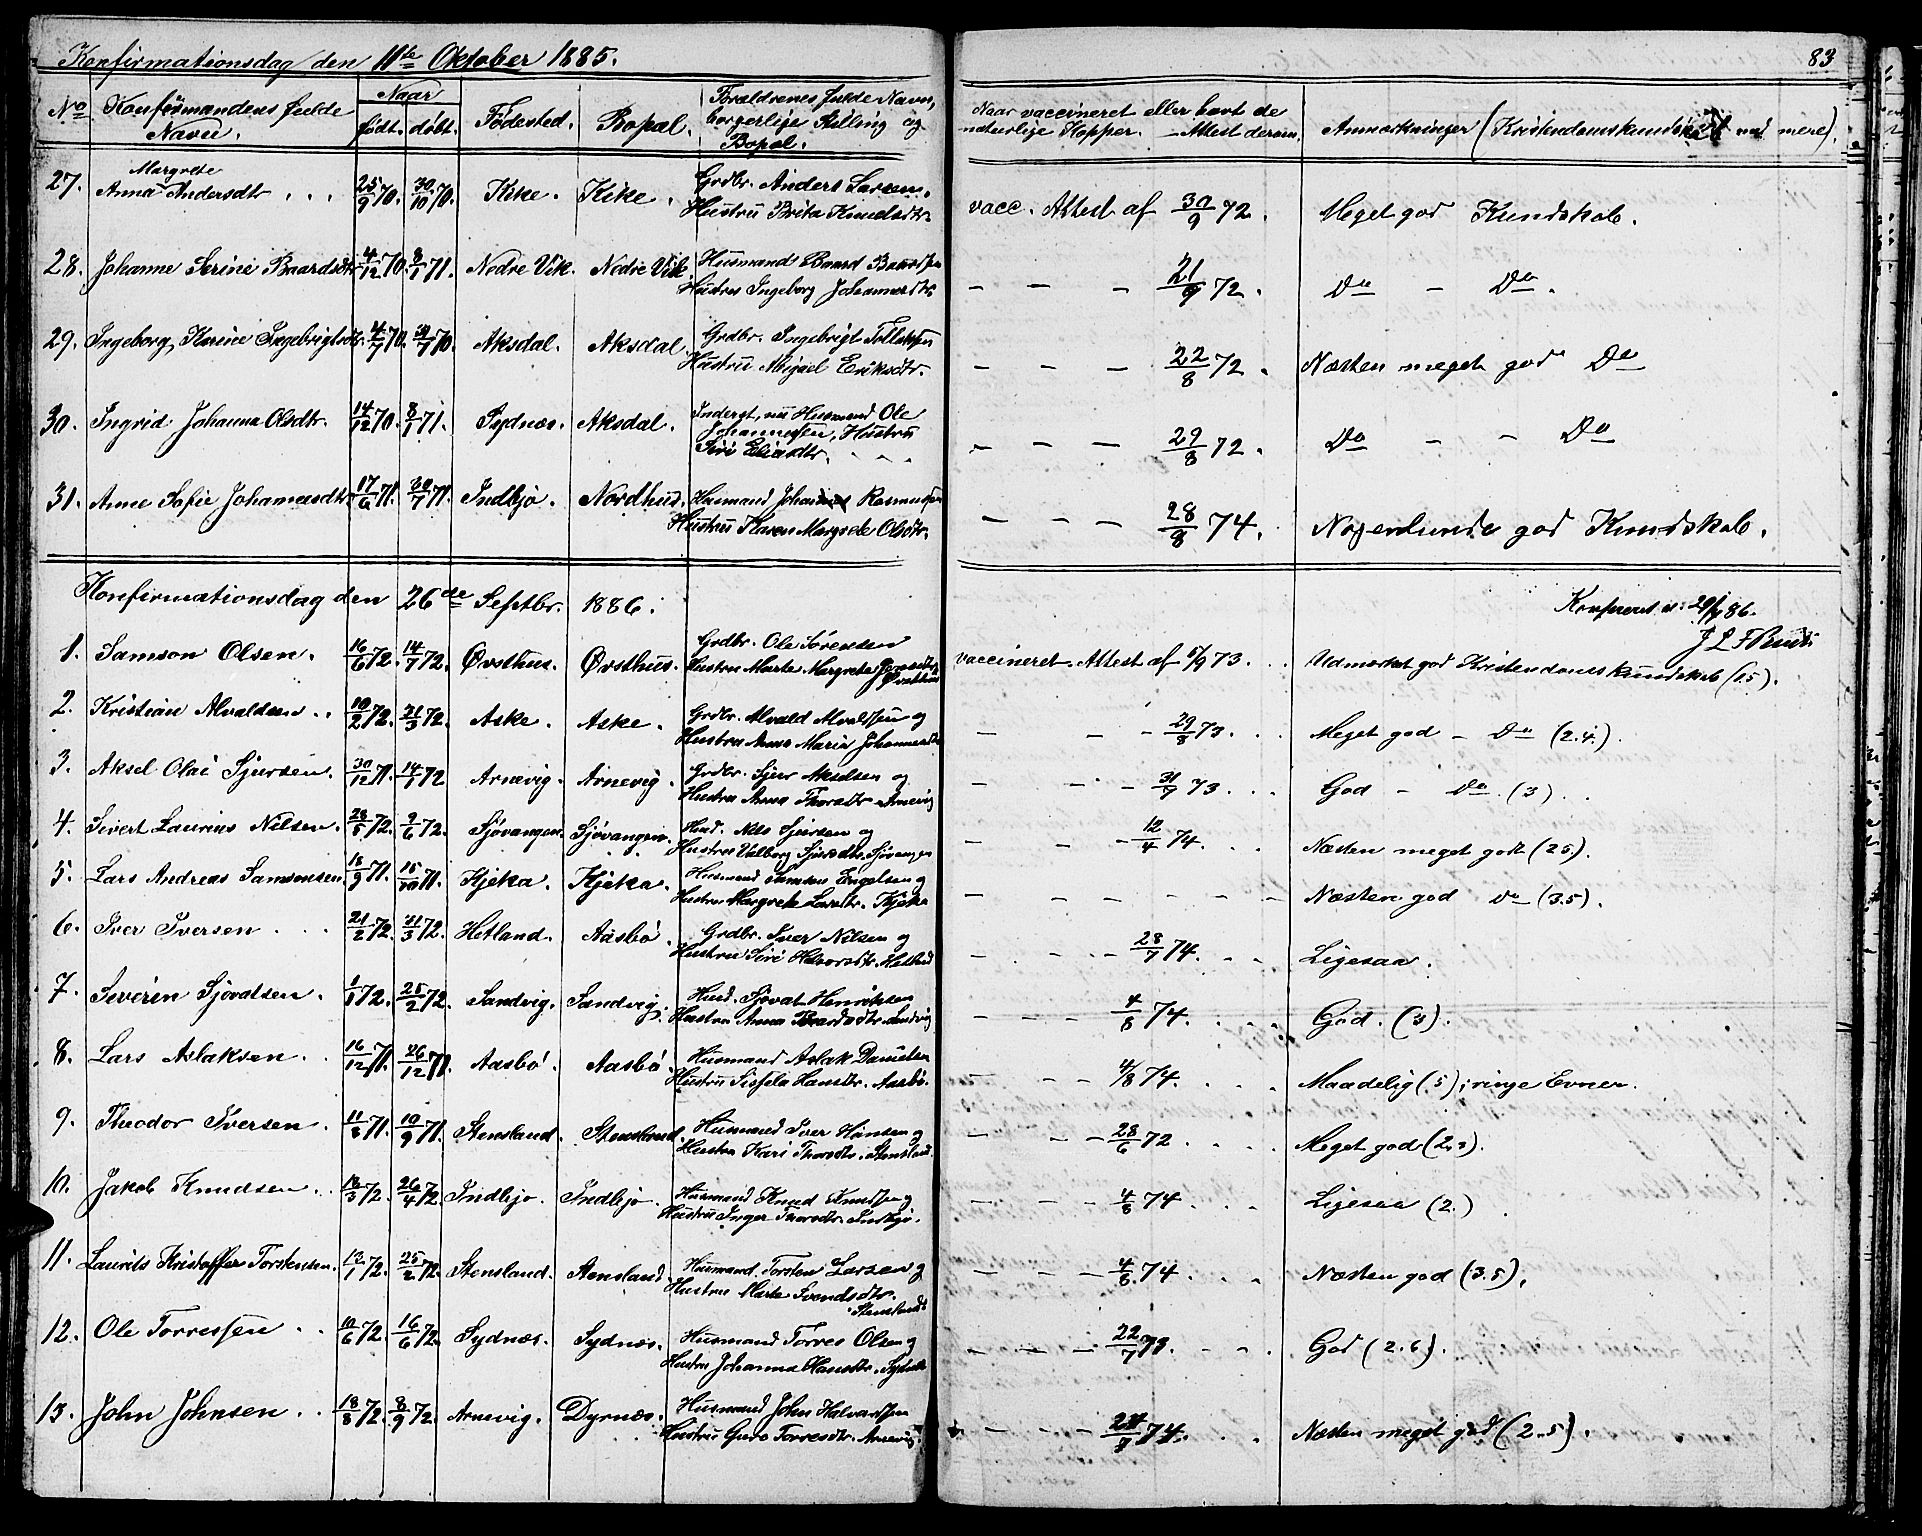 Konfirmationsdag den 11te Oktober 1885.
83
No Konfirmandens fulde Navn. Naar født. døbt. Fødested. Bopæl. Forældrenes fulde Navn, borgerlige Stilling og Bopæl. Naar vaccineret eller havt de naturlige Kopper. – Attest derom. Anmærkninger (Kristendomskundskab med mere).
27. Anna Margrete Andersdtr . . . 25/9 70. 30/10 70. Kike. Kike. Grdbr. Anders Larsen. Hustru Brita Knudsdtr. vacc. Attest af 30/9 72. Meget god Kundskab.
28. Johanne Serine Baardsdtr. 4/12 70. 8/1 71. Nedre Vik. Nedre Vik. Husmand Baard Baardsen Hustru Ingeborg Johannesdtr. – – – 21/9 72. Do – Do.
29. Ingeborg Karine Ingebrigtsdtr. 4/7 70. 31/7 70. Aksdal. Aksdal. Grdbr. Ingebrigt Tollefsen Hustru Migæl Eriksdtr. – – – 22/8 72. Næsten meget god Do
30. Ingrid Johanna Olsdtr. 14/12 70. 8/1 71. Sydnæs. Aksdal. Inderst, nu Husmand Ole Johannessen, Hustru Siri Eliasdtr. – – – 29/8 72. Do – – Do
31. Anne Sofie Johannesdtr. 17/6 71. 30/7 71. Indbjo. Nordhus. Husmand Johannes Rasmussen Hustru Karen Margrete Olsdtr. – – – 28/8 74. Nogenlunde god Kundskab.
Konfirmationsdag den 26de Septbr. 1886.
1. Samson Olsen. 16/6 72. 14/7 72. Øvsthus. Øvsthus. Grdbr. Ole Sørensen Hustru Marta Margrete Øvsthus vaccineret. Attest af 5/9 73. . . Udmærket god Kristendomskundskab (1.5).
2. Kristian Alvaldsen . . 10/2 72. 31/3 72. Aske. Aske. Grdbr. Alvald Alvaldsen og Hustru Anna Maria Johannesdtr – – – 29/8 73. . . Meget god – Do (2.4).
3. Aksel Olai Sjursen. 30/12 71. 14/1 72 Arnevig. Arnevig. Grdbr. Sjur Akselsen og Hustru Anna Thorsdtr Arnevig – – – 31/7 73. . . God – Do. (3). .
4. Sivert Laurius Nilsen. 28/5 72. 9/6 72. Sjøvangen. Sjøvangen. Husd. Nils Sjursen og Hustru Valborg Sjursdtr. Sjøvangen – – – 12/4 74. . . Næsten meget godt (2.5).
5. Lars Andreas Samsonsen. 18/9 71. 15/10 71. Kjeka. Kjeka. Husmand Samson Engelsen og Hustru Margrete Larsdtr. Kjeka – – – – – – Næsten god Do (3.5).
6. Iver Iversen . . . 21/2 72. 31/3 72. Hetland. Aasbø. Grdbr. Iver Nilsen og Hustru Siri Halvorsdtr. Hetland – – – 28/7 74. . . Ligesaa.
7. Severin Sjovatsen. 1/1 72. 25/2 72. Sandvig. Sandvig. Husd. Sjovat Henriksen Hustru Anna Baardsdtr. Sandvig – – – 4/8 74. . . . God. (3).
8. Lars Aslaksen. . . 16/12 71. 26/12 71. Aasbø. Aasbø. Husmand Aslak Danielsen Hustru Sissela Hansdtr. Aasbø. – – – 4/8 74. . . . Maadelig (5); ringe Evner.
9. Theodor Iversen . . 11/8 71. 10/9 71. Stensland. Stensland. Husmand Iver Hansen og Hustru Kari Thorsdtr. Stensland. – – – 28/6 72 . . . Meget god (2.2).
10. Jakob Knudsen . . 18/3 72. 26/4 72. Indbjo. Indbjo. Husmand Knud Knudsen og Hustru Inger Thorsdtr. Indbjo. – – – 4/8 74 . . . Ligesaa (2.)
11. Laurits Kristoffer Torstensen. 13/1 72. 25/2 72. Stensland. Stensland. Husmand Torsten Larsen og Hustru Marta Svendsdtr. Stensland. – – – 4/8 74. . . . Næsten god (3.5).
12. Ole Torressen . . 10/6 72. 16/6 72. Sydnæs. Sydnæs. Husmand Torres Olsen og Hustru Johanna Hansdtr. Sydnæs – – – 22/7 73. – . . God (2.6).
13. John Johnsen . . 18/8 72. 8/9 72. Arnevig. Dyrnæs. Husmand John Halvorsen Hustru Guro Torresdtr. Arnevig – – – 74. . . Næsten meget god (2.5).